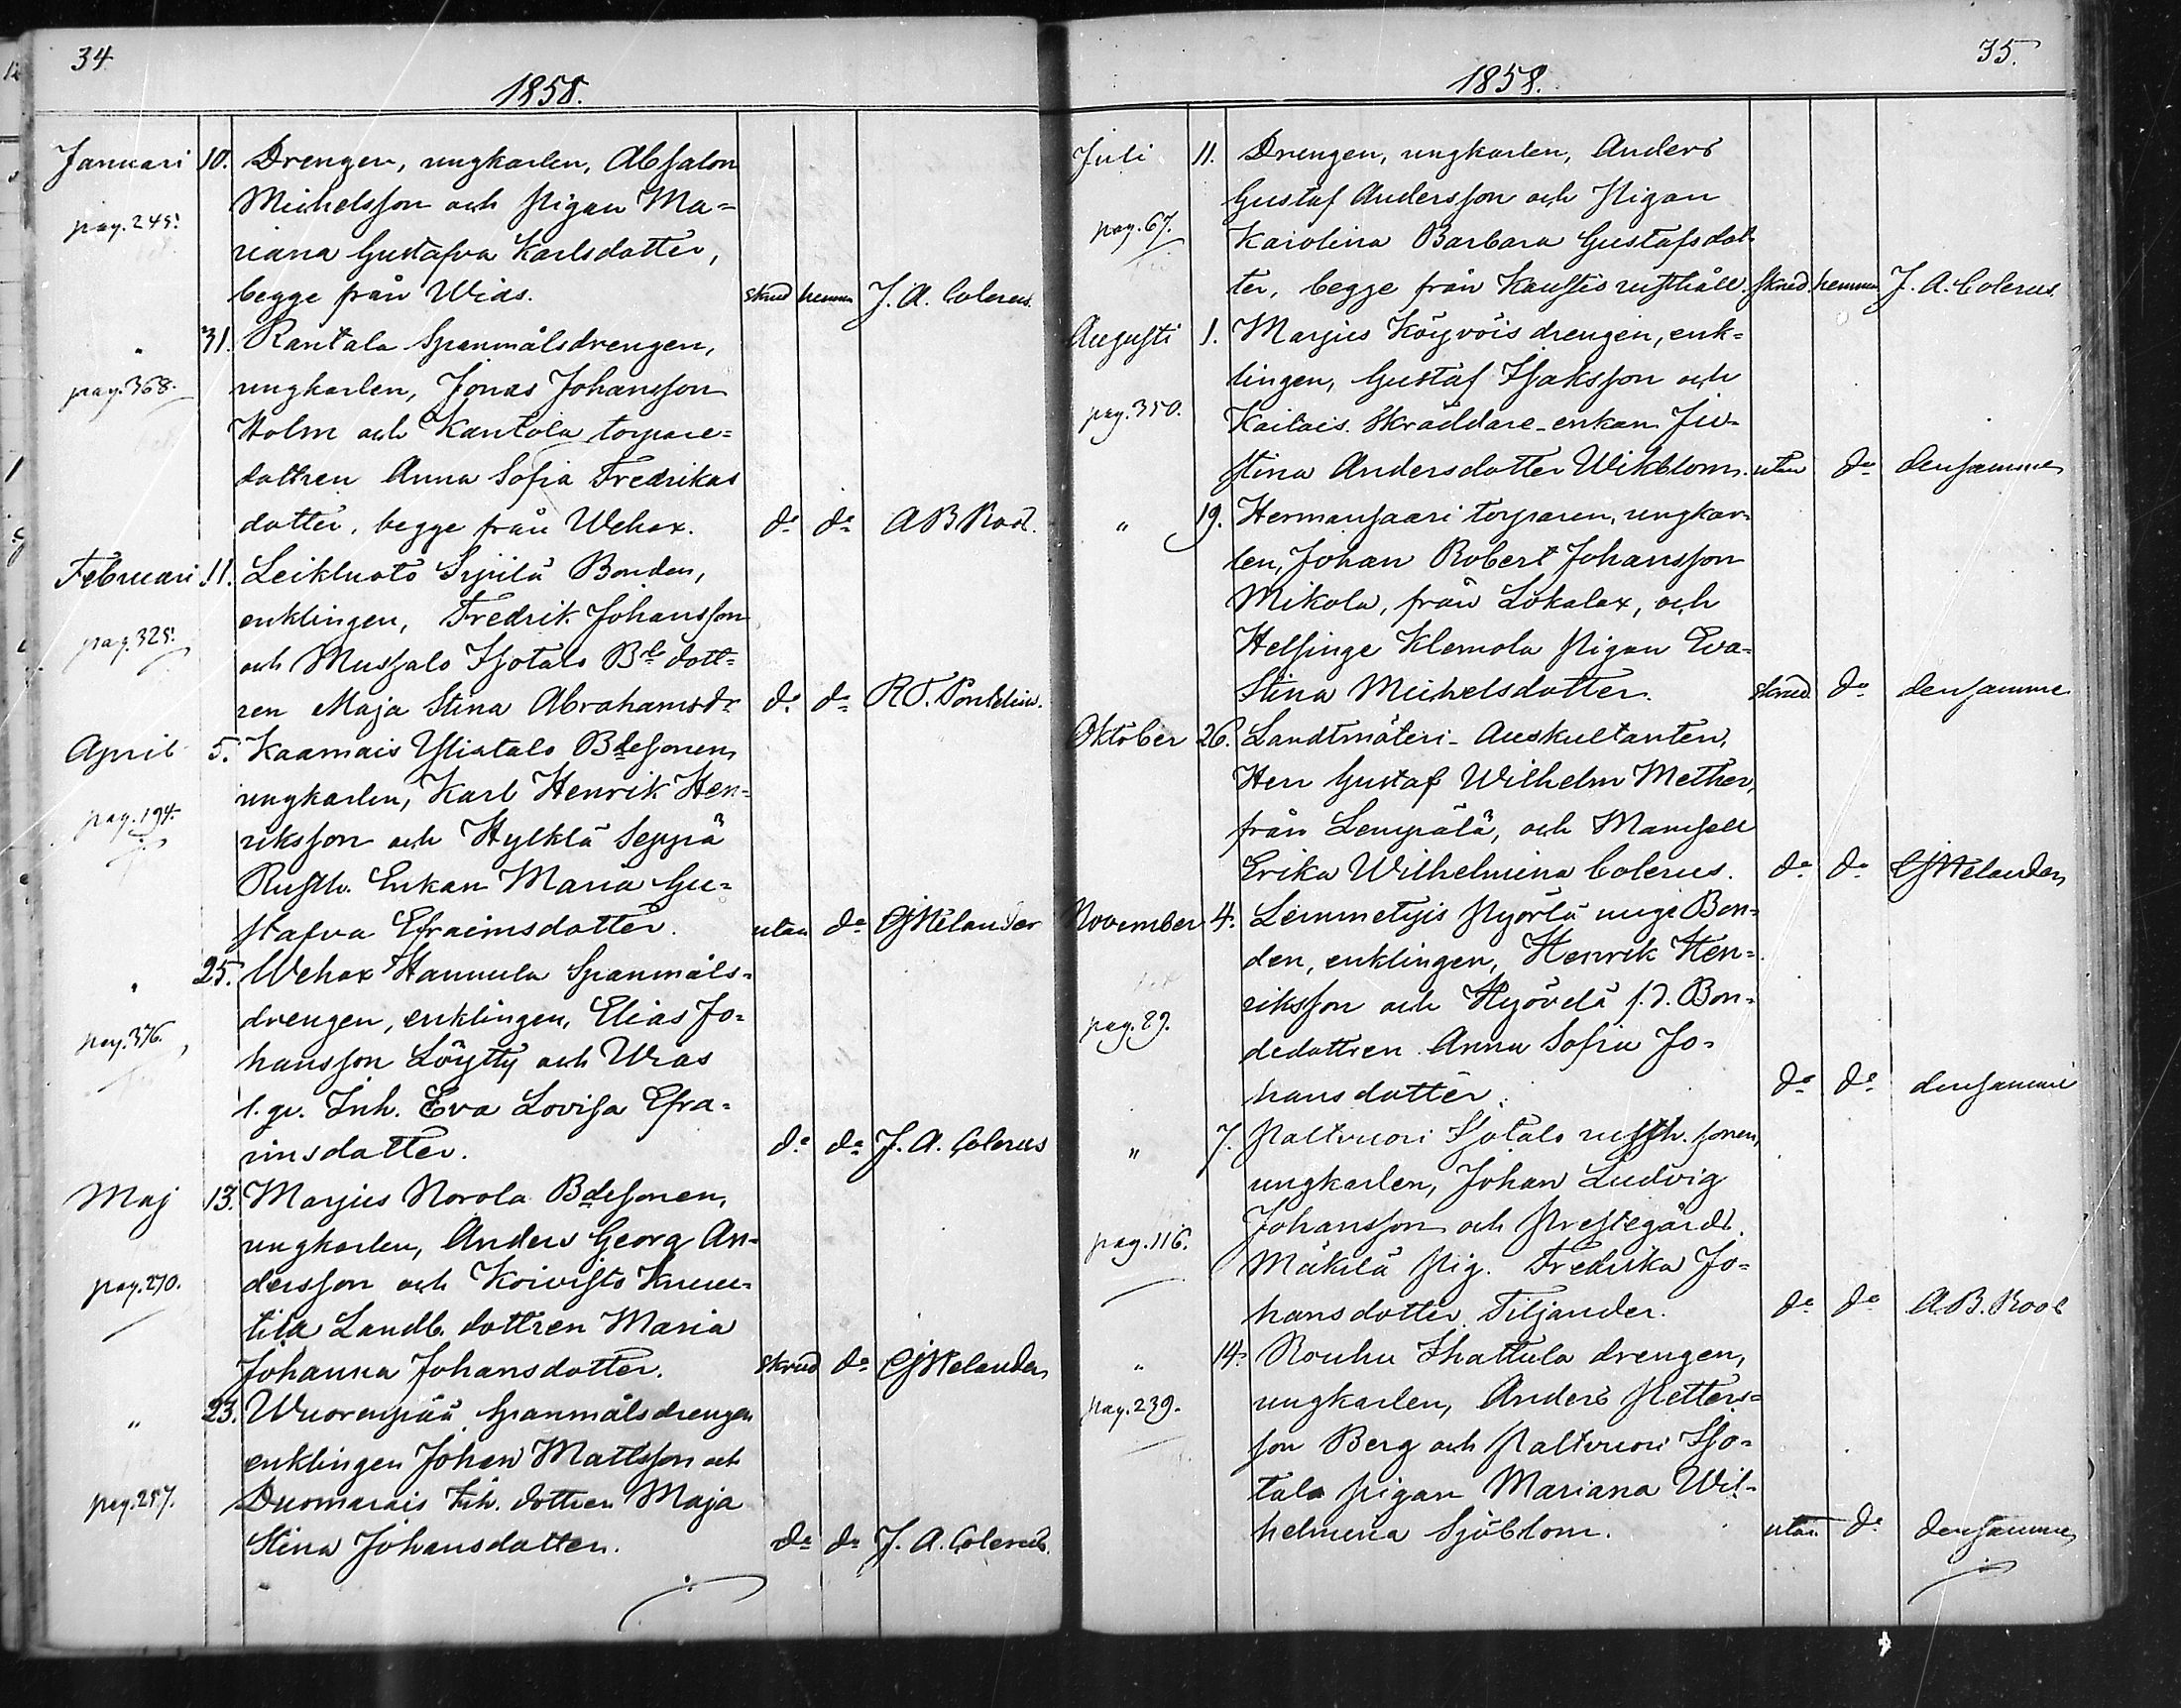 34
1858.
Januari 10. Drengen, ungkarlen, Absalon
Michelsson och pigan Ma=
pag. 245.
riana Gustafva Karlsdotter,
begge från Wias. skrud hemma J. A. Colerus.
" 31. Rantala Spanmålsdrengen,
pag. 368. ungkarlen, Jonas Johansson
Holm och Kantola torpare=
dottren Anna Sofia Fredrikas
dotter, begge från Wehax. do do A B Roos.
Februari 11. Leikluoto Sipilä Bonden,
enklingen, Fredrik Johansson
pag. 325.
och Mussalo Isotalo Bde dott=
ren Maja Stina Abrahamsdr do do
April 5. Kaamais Ylistalo Bdesonen,
ungkarlen, Karl Henrik Hen=
pag. 194.
riksson och Hylkilä Seppä
Rusth. Enkan Maria Gu=
stafva Efraimsdotter. utan do CJHelander
" 25. Wehax Hannula Spanmåls=
drengen, enklingen, Elias Jo=
pag. 376.
hansson Löytty och Wias
Inh. Eva Lovisa Efra=
imsdotter. do do J. A. Colerus
Maj 13. Marjus Norola Bdesonen,
ungkarlen, Anders Georg An=
pag. 270. dersson och Koivisto Knuu=
tila Landb. dottren Maria
Johanna Johansdotter. skrud do CJHelander
" 23. Wuorenpää Spanmålsdrengen
enklingen Johan Mattsson och
pag. 257. Duomarais Inh. dottren Maja
Stina Johansdotter. do do J. A. Colerus.
35.
1858.
Juli 11. Drengen, ungkarlen, Anders
Gustaf Andersson och pigan
pag. 67. Karolina Barbara Gustafsdot=
ter, begge från Kaustio rusthåll. skrud. hemma J. A. Colerus.
Augusti 1. Marjus Köyvöis drengen, enk=
lingen, Gustaf Isaksson och
pag. 350. Kailais Skräddare-enkan Ju=
stina Andersdotter Wikblom. utan do densamme
" 19. Hermansaari torparen, ungkar=
len, Johan Robert Johansson
Mikola, från Lokalax, och
Helsinge Klemola pigan Eva
Stina Michelsdotter. skrud. do densamme
Oktober 26. Landtmäteri-Auskultanten,
Herr Gustaf Wilhelm Mether,
från Lempälä, och Mamsell
Erika Wilhelmina Colerus. do do CJHelander
November 4. Lemmetyis Pyörlä unge Bon=
den, enklingen, Henrik Hen=
riksson och Hyövelä f.d. Bon=
pag. 89.
dedottren Anna Sofia Jo=
hansdotter. do do densamme
" 7. Paltvuori Isotalo rusth. sonen,
ungkarlen, Johan Ludvig
Johansson och Prestegårds
pag. 116.
Mäkilä pig. Fredrika Jo=
hansdotter Tiljander. do do A. B. Roos
" 14. Rouhu Ihattula drengen,
pag. 239. ungkarlen, Anders Petters=
son Berg och Paltvuori Iso=
talo pigan Mariana Wil=
helmina Sjöblom. utan do densamme